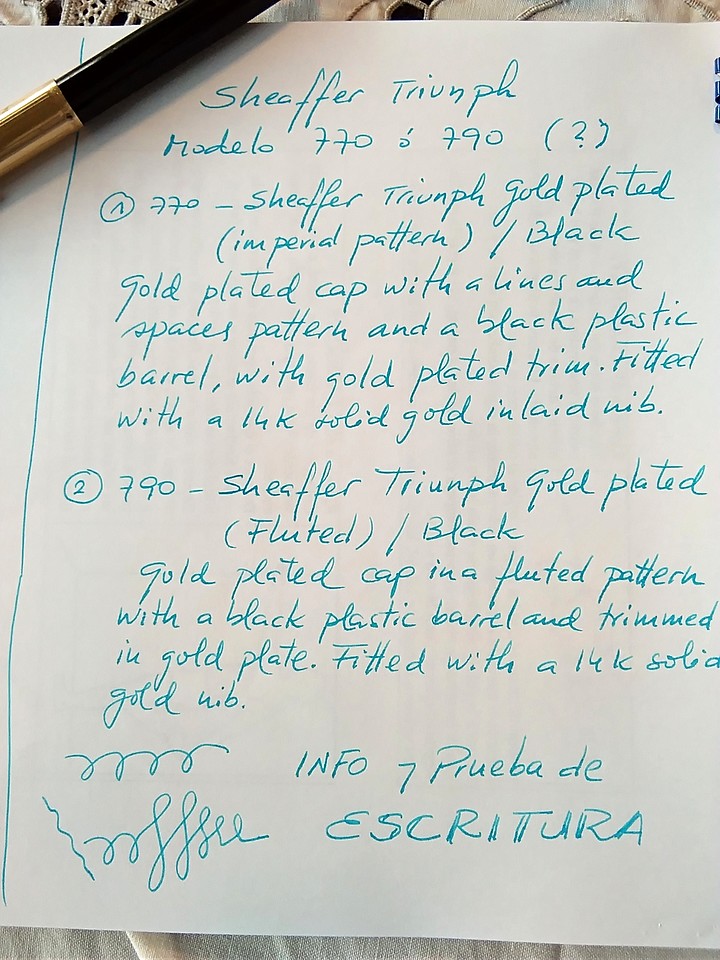 Sheaffer Triunph
Modelo 770 ó 790 (?)
① 770 - Sheaffer Triunph Gold plated
(imperial pattern) / Black
Gold plated cap with a lines and
spaces pattern and a black plastic
barrel, with gold plated trim. Fitted
with a 14K solid gold inlaid nib.
② 790 - Sheaffer Triunph Gold plated
(Fluted) / Black
Gold plated cap in a fluted pattern
with a black plastic barrel and trimmed
in gold plate. Fitted with a 14K solid
gold nib.
INFO y Prueba de
ESCRITURA